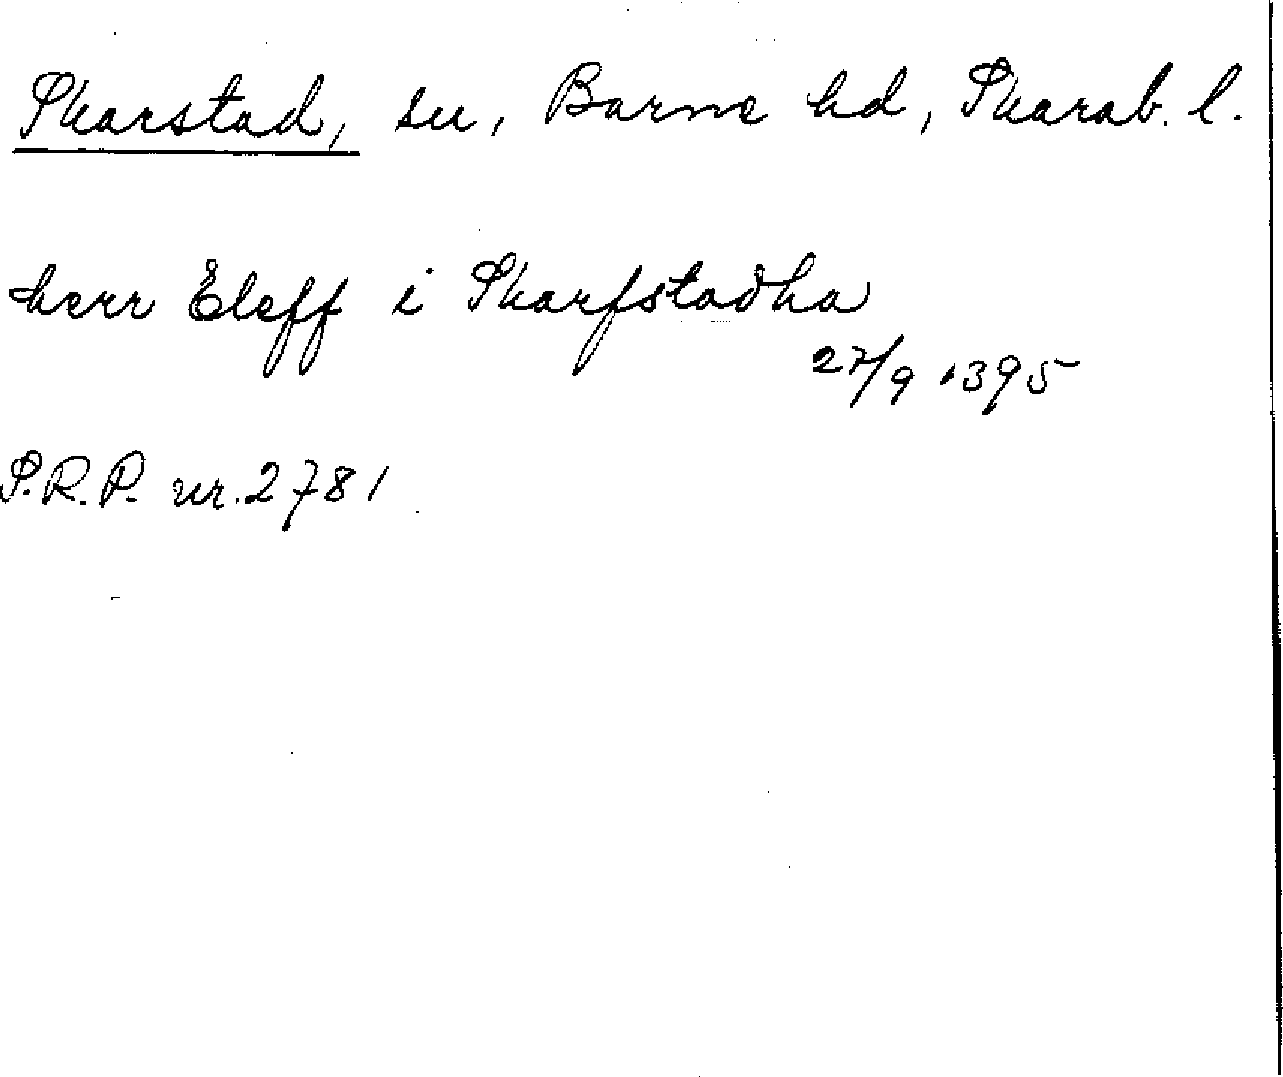 Skarstad, sn, Barne hd, Skarab. l.
herr Eleff i Skarfstadha
27/9 1395
S.R.P. nr. 2781